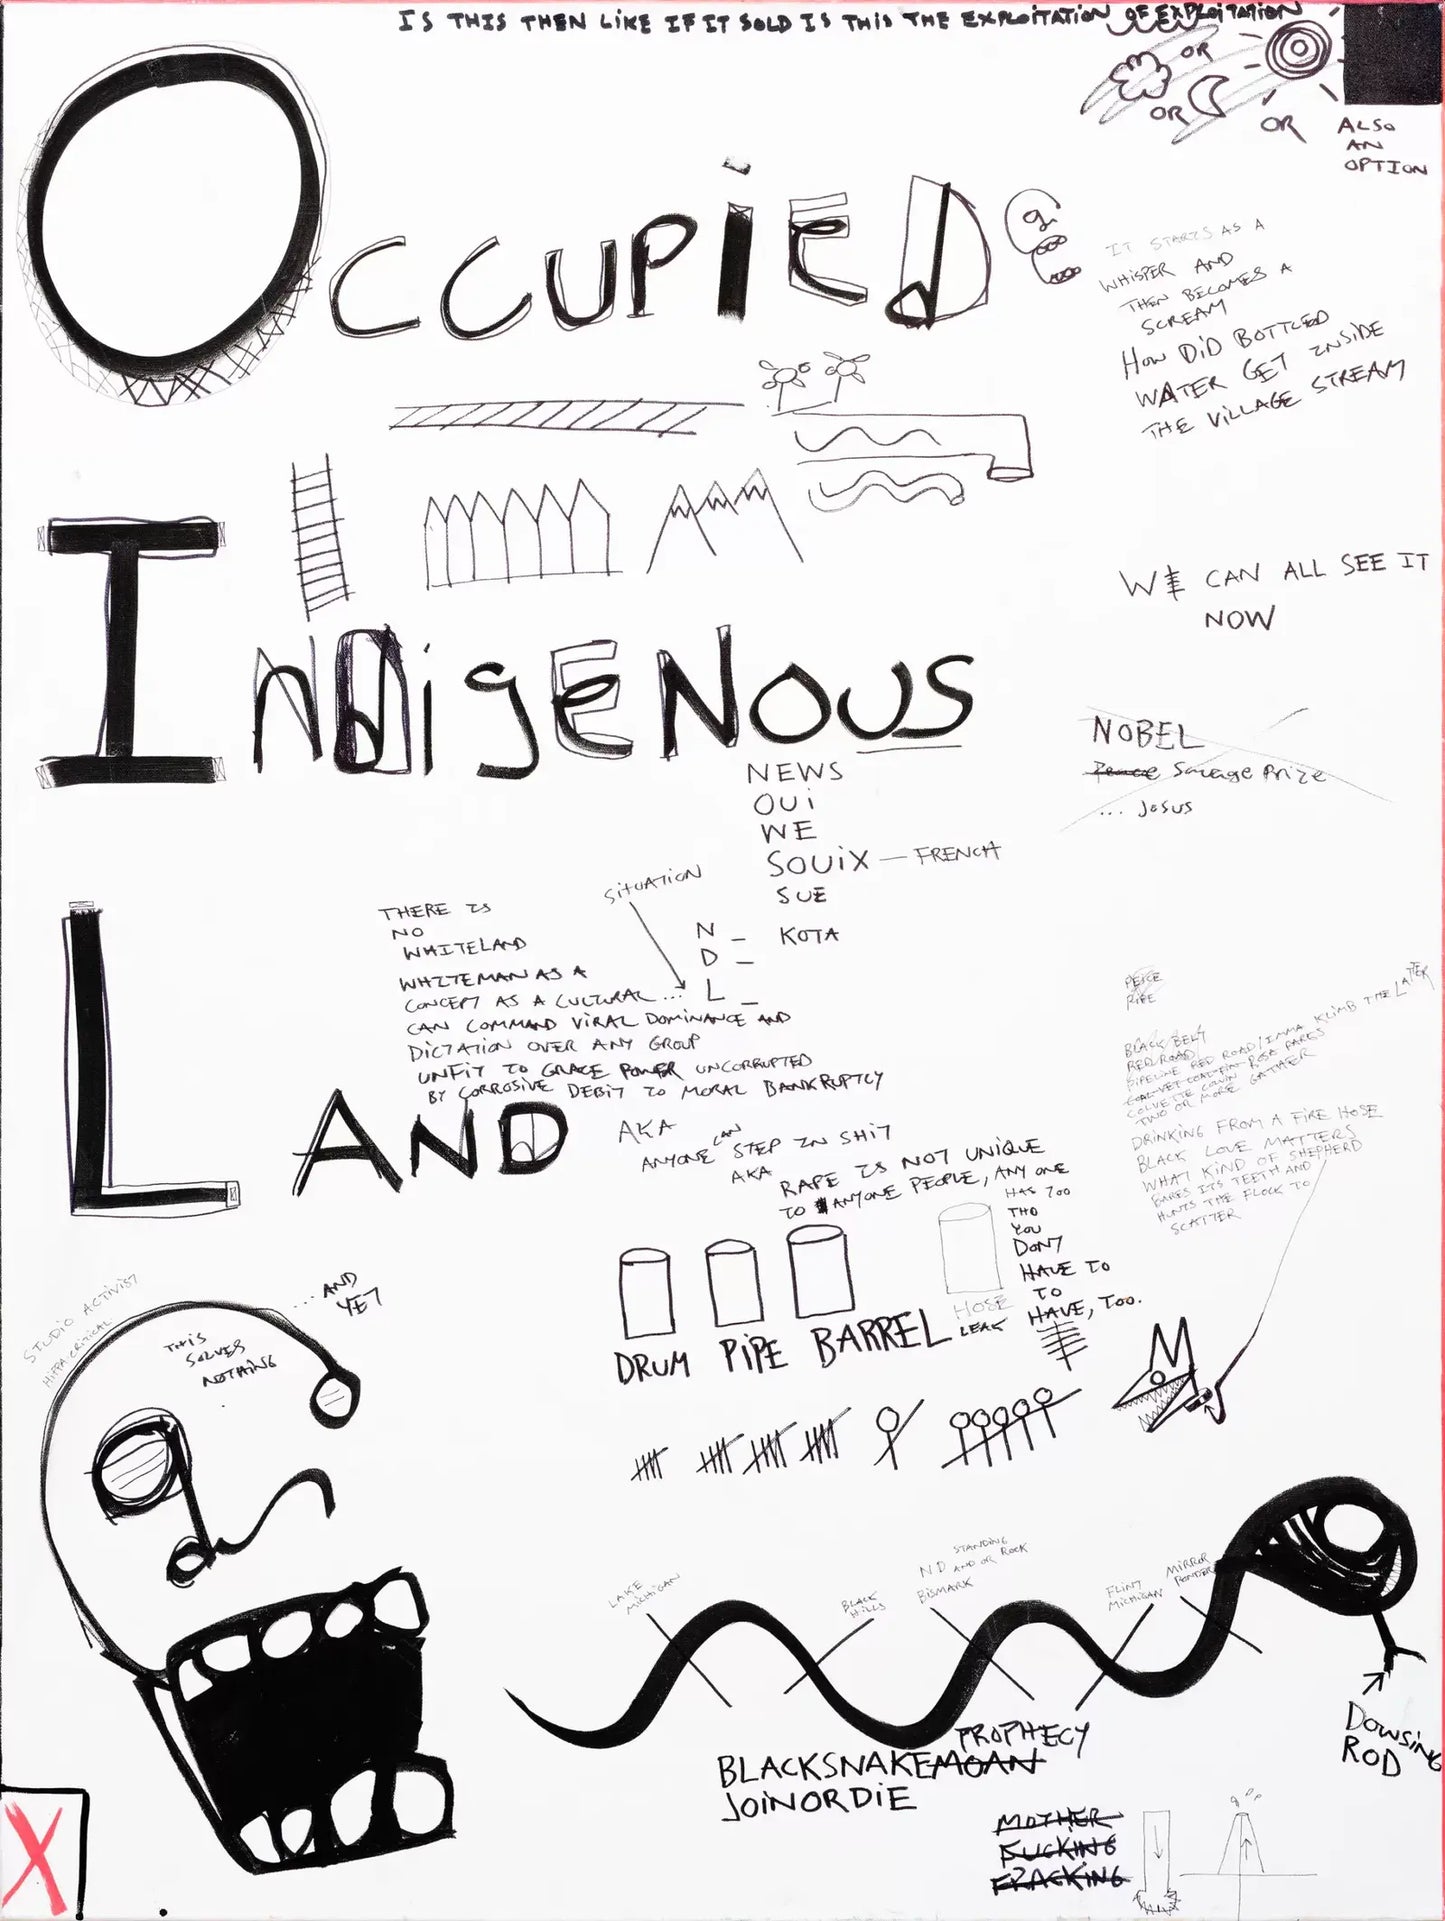 IS THIS THEN LIKE IF IT SOLD IS THIS THE EXPLOITATION OF EXPLOITATION
OR
OR
OR
ALSO
AN
OPTION
OCCUPIED
IT STARTS AS A
WHISPER AND
THEN BECOMES A
SCREAM
HOW DID BOTTLED
WATER GET INSIDE
THE VILLAGE STREAM
WE CAN ALL SEE IT
NOW
INDIGENOUS
NOBEL
Peace Savage Prize
... JOSUS
NEWS
OUI
WE
SOUIX — FRENCH
SUE
SITUATION
N _ KOTA
D _
L _
THERE IS
NO
WHITELAND
WHITEMAN AS A
CONCEPT AS A CULTURAL ...
CAN COMMAND VIRAL DOMINANCE AND
DICTATION OVER ANY GROUP
UNFIT TO GRACE POWER UNCORRUPTED
BY CORROSIVE DEBIT TO MORAL BANKRUPTLY
LAND
AKA
ANYONE CAN STEP IN SHIT
AKA
RAPE IS NOT UNIQUE
TO ANYONE PEOPLE, ANY ONE
HAS TOO
THO
YOU
DON'T
HAVE TO
TO
HAVE, TOO.
PIPE
BLACK BELT
RED ROAD
PIPELINE RED ROAD / IMMA KLIMB THE LATTER
ROSA PARKS
TWO OR MORE GATHER
DRINKING FROM A FIRE HOSE
BLACK LOVE MATTERS
WHAT KIND OF SHEPHERD
BARES ITS TEETH AND
HUNTS THE FLOCK TO
SCATTER
HOSE
LEAK
DRUM PIPE BARREL
STUDIO ACTIVIST
HIPPA-CRITICAL
... AND
YET
THIS
SOLVES
NOTHING
LAKE
MICHIGAN
BLACK
HILLS
STANDING
ND AND OR ROCK
BISMARK
FLINT
MICHIGAN
MIRROR
DOWSING
ROD
PROPHECY
BLACKSNAKEMOAN
JOINORDIE
MOTHER
FUCKING
FRACKING
X